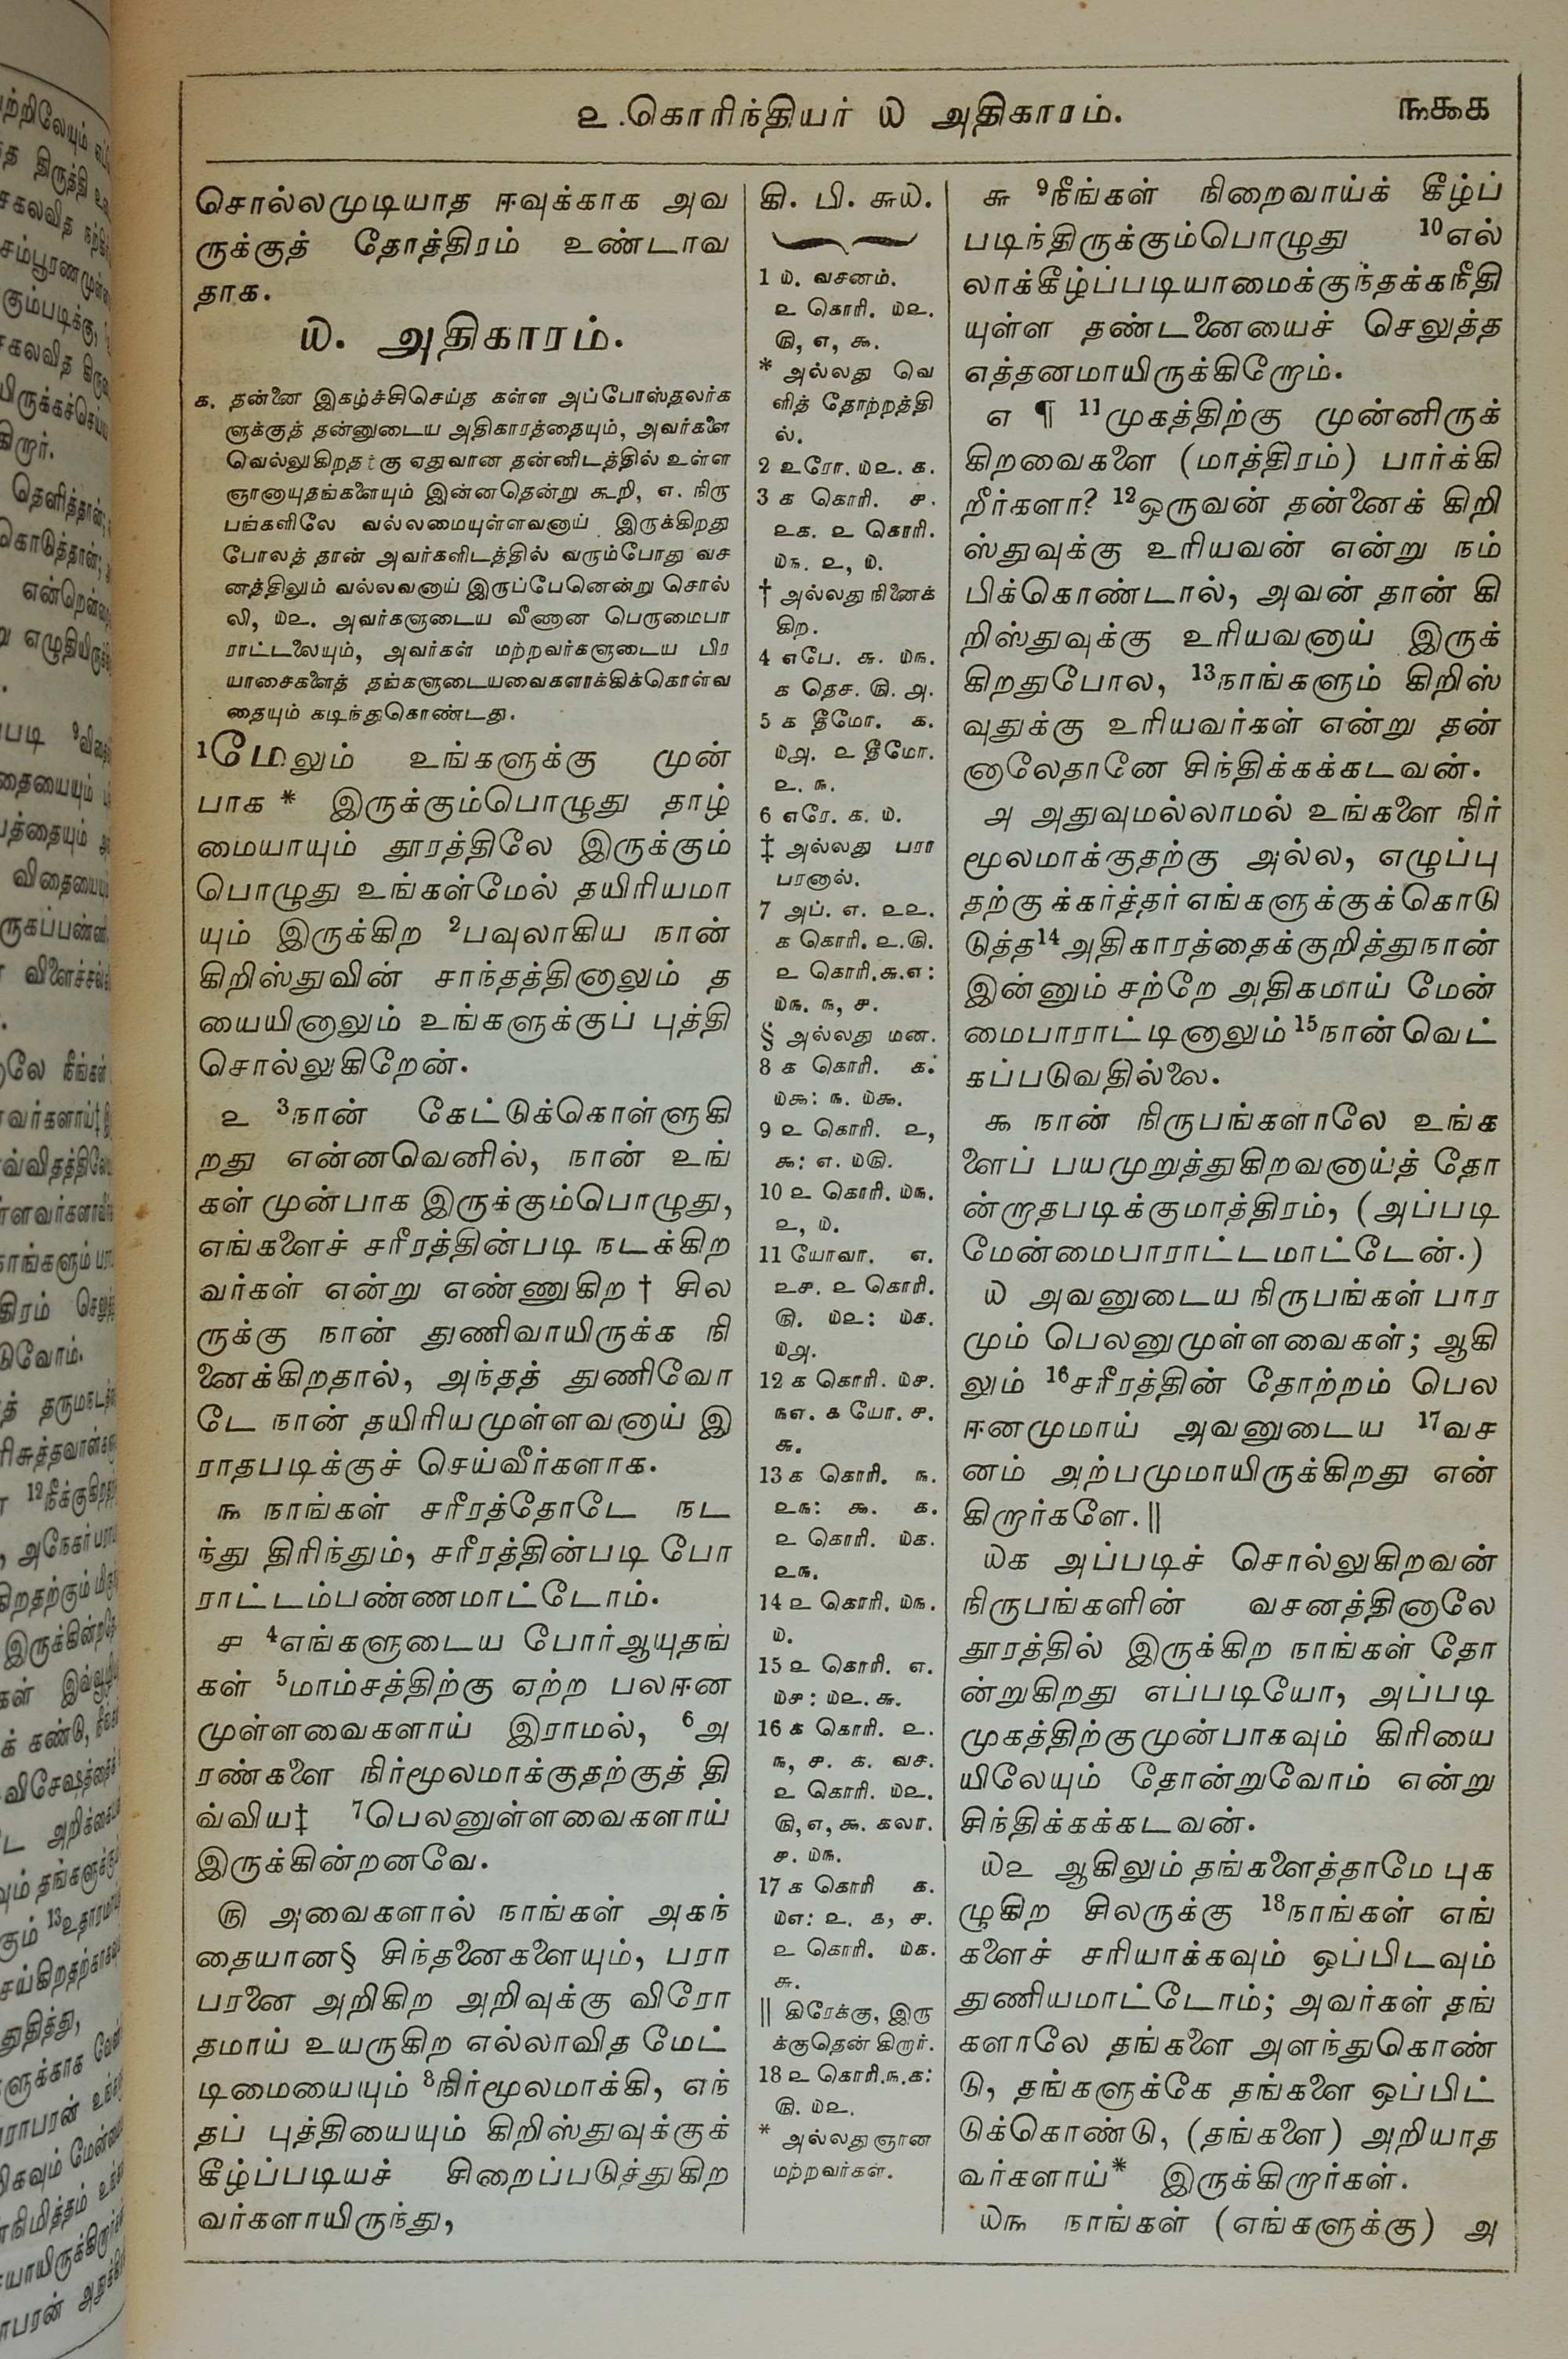 ௨.கொரிந்தியர் ௰ அதிகாரம்.
௩௬௧
சொல்லமுடியாத ஈவுக்காக அவ
ருக்குத் தோத்திரம் உண்டாவ
தாக.
௰. அதிகாரம்.
௧. தன்னை இகழ்ச்சிசெய்த கள்ள அப்போஸ்தலர்க
ளுக்குத் தன்னுடைய அதிகாரத்தையும், அவர்களை
வெல்லுகிறதற்கு ஏதுவான தன்னிடத்தில் உள்ள
ஞானாயுதங்களையும் இன்னதென்று கூறி, ௭. நிரு
பங்களிலே வல்லமையுள்ளவனாய் இருக்கிறது
போலத் தான் அவர்களிடத்தில் வரும்போது வச
னத்திலும் வல்லவனாய் இருப்பேனென்று சொல்
லி, ௰௨. அவர்களுடைய வீணான பெருமைபா
ராட்டலையும், அவர்கள் மற்றவர்களுடைய பிர
யாசைகளைத் தங்களுடையவைகளாக்கிக்கொள்வ
தையும் கடிந்துகொண்டது.
1மேலும் உங்களுக்கு முன்
பாக * இருக்கும்பொழுது தாழ்
மையாயும் தூரத்திலே இருக்கும்
பொழுது உங்கள்மேல் தயிரியமா
யும் இருக்கிற 2பவுலாகிய நான்
கிறிஸ்துவின் சாந்தத்தினாலும் த
யையினாலும் உங்களுக்குப் புத்தி
சொல்லுகிறேன்.
௨ 3நான் கேட்டுக்கொள்ளுகி
றது என்னவெனில், நான் உங்
கள் முன்பாக இருக்கும்பொழுது,
எங்களைச் சரீரத்தின்படி நடக்கிற
வர்கள் என்று எண்ணுகிற † சில
ருக்கு நான் துணிவாயிருக்க நி
னைக்கிறதால், அந்தத் துணிவோ
டே நான் தயிரியமுள்ளவனாய் இ
ராதபடிக்குச் செய்வீர்களாக.
௩ நாங்கள் சரீரத்தோடே நட
ந்து திரிந்தும், சரீரத்தின்படி போ
ராட்டம்பண்ணமாட்டோம்.
௪ 4எங்களுடைய போர்ஆயுதங்
கள் 5மாம்சத்திற்கு ஏற்ற பலஈன
முள்ளவைகளாய் இராமல், 6அ
ரண்களை நிர்மூலமாக்குதற்குத் தி
வ்விய‡ 7பெலனுள்ளவைகளாய்
இருக்கின்றனவே.
௫ அவைகளால் நாங்கள் அகந்
தையான§ சிந்தனைகளையும், பரா
பரனை அறிகிற அறிவுக்கு விரோ
தமாய் உயருகிற எல்லாவித மேட்
டிமையையும் 8நிர்மூலமாக்கி, எந்
தப் புத்தியையும் கிறிஸ்துவுக்குக்
கீழ்ப்படியச் சிறைப்படுத்துகிற
வர்களாயிருந்து,
கி. பி. ௬௰.
1 ௰. வசனம்.
௨ கொரி. ௰௨.
௫, ௭, ௯.
* அல்லது வெ
ளித் தோற்றத்தி
ல்.
2 உரோ. ௰௨. ௧.
3 ௧ கொரி. ௪.
௨௧. ௨ கொரி.
௰௩. ௨, ௰.
† அல்லது நினைக்
கிற.
4 எபே. ௬. ௰௩.
௧ தெச. ௫. ௮.
5 ௧ தீமோ. ௧.
௰௮. ௨ தீமோ.
௨. ௩.
6 எரே. ௧. ௰.
‡ அல்லது பரா
பரனால்.
7 அப். ௭. ௨௨.
௧ கொரி. ௨.௫.
௨ கொரி.௬.௭:
௰௩. ௩, ௪.
§ அல்லது மன.
8 ௧ கொரி. ௧:
௰௯: ௩. ௰௯.
9 ௨ கொரி. ௨,
௯: ௭. ௰௫.
10 ௨ கொரி. ௰௩.
௨, ௰.
11 யோவா. ௭.
௨௪. ௨ கொரி.
௫. ௰௨: ௰௧.
௰௮.
12 ௧ கொரி. ௰௪.
௩௭. ௧ யோ. ௪.
௬.
13 ௧ கொரி. ௩.
௨௩: ௯. ௧.
௨ கொரி. ௰௧.
௨௩.
14 ௨ கொரி. ௰௩.
௰.
15 ௨ கொரி. ௭.
௰௪: ௰௨. ௬.
16 ௧ கொரி. ௨.
௩, ௪. ௧. வச.
௨ கொரி. ௰௨.
௫, ௭, ௯. கலா.
௪. ௰௩.
17 ௧ கொரி ௧.
௰௭: ௨. ௧, ௪.
௨ கொரி. ௰௧.
௬.
|| கிரேக்கு, இரு
க்குதென்கிறார்.
18 ௨ கொரி.௩.௧:
௫. ௰௨.
* அல்லது ஞான
மற்றவர்கள்.
௬ 9நீங்கள் நிறைவாய்க் கீழ்ப்
படிந்திருக்கும்பொழுது 10எல்
லாக்கீழ்ப்படியாமைக்குந்தக்கநீதி
யுள்ள தண்டனையைச் செலுத்த
எத்தனமாயிருக்கிறோம்.
௭ ¶ 11முகத்திற்கு முன்னிருக்
கிறவைகளை (மாத்திரம்) பார்க்கி
றீர்களா? 12ஒருவன் தன்னைக் கிறி
ஸ்துவுக்கு உரியவன் என்று நம்
பிக்கொண்டால், அவன் தான் கி
றிஸ்துவுக்கு உரியவனாய் இருக்
கிறதுபோல, 13நாங்களும் கிறிஸ்
வுதுக்கு உரியவர்கள் என்று தன்
னாலேதானே சிந்திக்கக்கடவன்.
௮ அதுவுமல்லாமல் உங்களை நிர்
மூலமாக்குதற்கு அல்ல, எழுப்பு
தற்கு க்கர்த்தர் எங்களுக்குக்கொடு
டுத்த14 அதிகாரத்தைக்குறித்துநான்
இன்னும் சற்றே அதிகமாய் மேன்
மைபாராட்டினாலும் 15நான் வெட்
கப்படுவதில்லை.
௯ நான் நிருபங்களாலே உங்க
ளைப் பயமுறுத்துகிறவனாய்த் தோ
ன்றாதபடிக்குமாத்திரம், (அப்படி
மேன்மைபாராட்டமாட்டேன்.)
௰ அவனுடைய நிருபங்கள் பார
மும் பெலனுமுள்ளவைகள்; ஆகி
லும் 16சரீரத்தின் தோற்றம் பெல
ஈனமுமாய் அவனுடைய 17வச
னம் அற்பமுமாயிருக்கிறது என்
கிறார்களே.||
௰௧ அப்படிச் சொல்லுகிறவன்
நிருபங்களின் வசனத்தினாலே
தூரத்தில் இருக்கிற நாங்கள் தோ
ன்றுகிறது எப்படியோ, அப்படி
முகத்திற்குமுன்பாகவும் கிரியை
யிலேயும் தோன்றுவோம் என்று
சிந்திக்கக்கடவன்.
௰௨ ஆகிலும் தங்களைத்தாமே புக
ழுகிற சிலருக்கு 18நாங்கள் எங்
களைச் சரியாக்கவும் ஒப்பிடவும்
துணியமாட்டோம்; அவர்கள் தங்
களாலே தங்களை அளந்துகொண்
டு, தங்களுக்கே தங்களை ஒப்பிட்
டுக்கொண்டு, (தங்களை) அறியாத
வர்களாய்* இருக்கிறார்கள்.
௰௩ நாங்கள் (எங்களுக்கு) அ